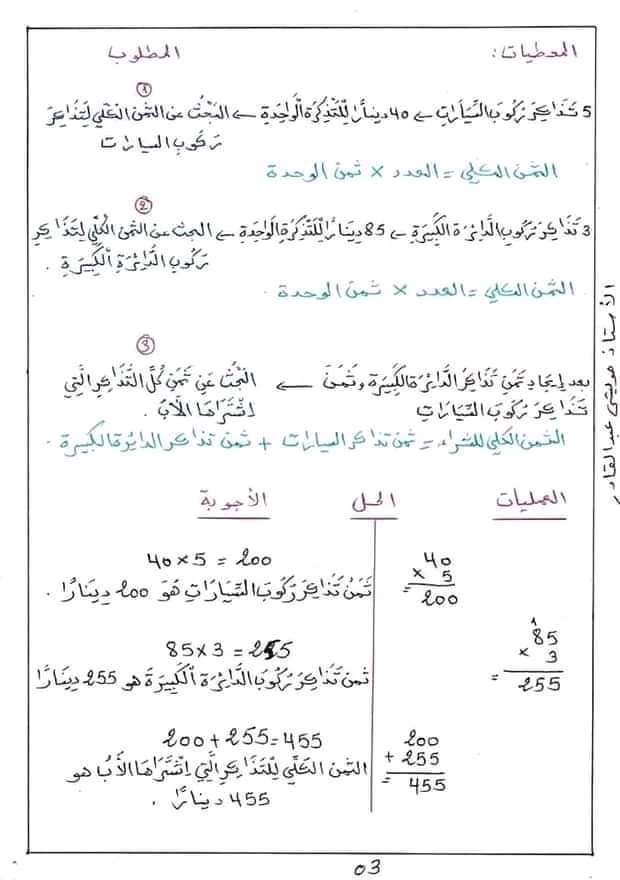 المعطيات: المطلوب
①
5 تَذَاكِرَ رُكُوبِ السَّيَارَاتِ ← 40 دينارًا لِلتَّذْكِرَةِ الْوَاحِدَةِ ← البَحْثُ عن الثَّمَنِ الكُلِّي لِتَذَاكِرَ
رُكُوبِ السيارات
الثمن الكلي = العدد × ثمن الوحدة
②
3 تَذَاكِرَ رُكُوبِ الدَّائِرَةِ الكَبِيرَةِ ← 85 دِينَارًا لِلتَّذْكِرَةِ الوَاحِدَةِ ← البحث عن الثَّمَنِ الكُلِّي لِتَذَاكِرِ
رُكُوبِ الدَّائِرَةِ الْكَبِيرَةِ .
الثمن الكلي = العدد × ثمن الوحدة .
③
بعد إيجاد ثَمَنِ تَذَاكِرِ الدَّائِرَةِ الكَبِيرَةِ وَثَمَنُ ← البَحْثُ عَنِ ثَمَنِ كُلَّ التَّذَاكِرِ الَّتِي
تَذَاكِرَ رُكُوبَ السَّيَارَاتِ اِشْتَرَاهَا الْأَبُ .
الثمن الكلي للشراء = ثمن تذاكر السيارات + ثمن تذاكر الدائرة الكبيرة .
العمليات الحل الأجوبة
40
× 5
= 200
40 × 5 = 200
ثَمَنُ تَذَاكِرَ رُكُوبَ السَّيَارَاتِ هُوَ 200 دِينَارًا .
1
85
× 3
= 255
85 × 3 = 255
ثمن تَذَاكِرَ رُكُوبَ الدَّائِرَةِ الْكَبِيرَةَ هو 255 دِينَارًا
200
+ 255
= 455
200 + 255 = 455
الثمن الكُلِّي لِلتَّذَاكِرِ الَّتِي اِشْتَرَاهَا الأَبُ هو
455 دينارًا .
الأستاذ مويسي عبد القادر
03